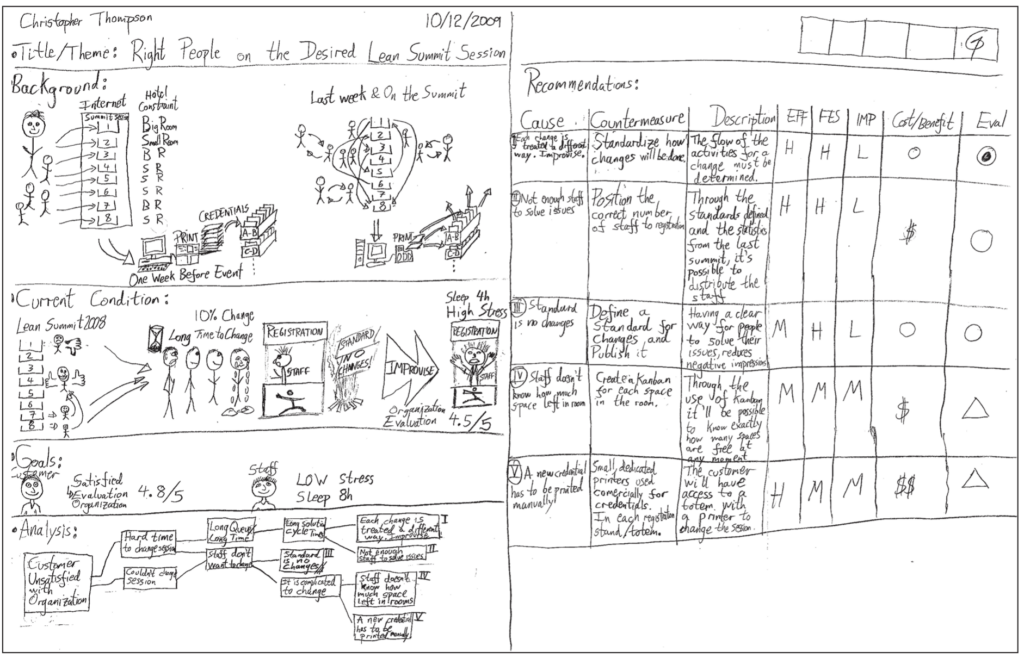 Christopher Thompson
10/12/2009
Title/Theme: Right People on the Desired Lean Summit Session
Background:
Internet
Hotel
Constraint
Summit
1 Big Room
2 Small Room
3 B R
4 S R
5 S R
6 S R
7 B R
8 S R
PRINT
CREDENTIALS
A-B
C-D
One Week Before Event
Last week & On the Summit
1
2
3
4
5
6
7
8
PRINT
A-B
C-D
Current Condition:
Lean Summit 2008
1
2
3
4
5
6
7
8
10% Change
Long Time to Change
REGISTRATION
STAFF
STANDARD
IS NO
CHANGES!
IMPROVISE
Organization
Evaluation 4.5/5
Sleep 4h
High Stress
REGISTRATION
STAFF
Goals:
Customer
Satisfied
Evaluation
Organization
4.8/5
Staff
LOW Stress
Sleep 8h
Analysis:
Customer
Unsatisfied
with
Organization
Hard time
to change session
Couldn't change
session
Long Queue
Long Time
Staff don't
want to change
Long solution
cycle time
Standard
is no
Changes
III
It is complicated
to change
Each change is
treated a different
way. Improvise
I
Not enough
staff to solve issues
II
Staff doesn't
know how
much space
left in rooms
IV
A new credential
has to be
printed manually
V
Recommendations:
Cause Countermeasure Description EFF FES IMP Cost/Benefit Eval
I Each change is
treated a different
way. Improvise.
Standardize how
changes will be done.
The flow of the
activities for a
change must be
determined.
H H L
II Not enough staff
to solve issues
Position the
correct number
of staff to registration
Through the
standards defined
and the statistics
from the last
summit, it's
possible to
distribute the
staff
H H L $
III Standard
is no changes
Define a
Standard for
Changes, and
Publish it
Having a clear
way for people
to solve their
issues, reduces
negative impressions
M H L
IV Staff doesn't
know how much
space left in room
Create a Kanban
for each space
in the room.
Through the
use of Kanban
it'll be possible
to know exactly
how many spaces
are free at
any moment
M M M $
V A new credential
has to be printed
manually!
Small, dedicated
printers used
comercially for
credentials.
In each registration
stand/totem.
The customer
will have
access to a
totem, with
a printer to
change the session
H M M $$